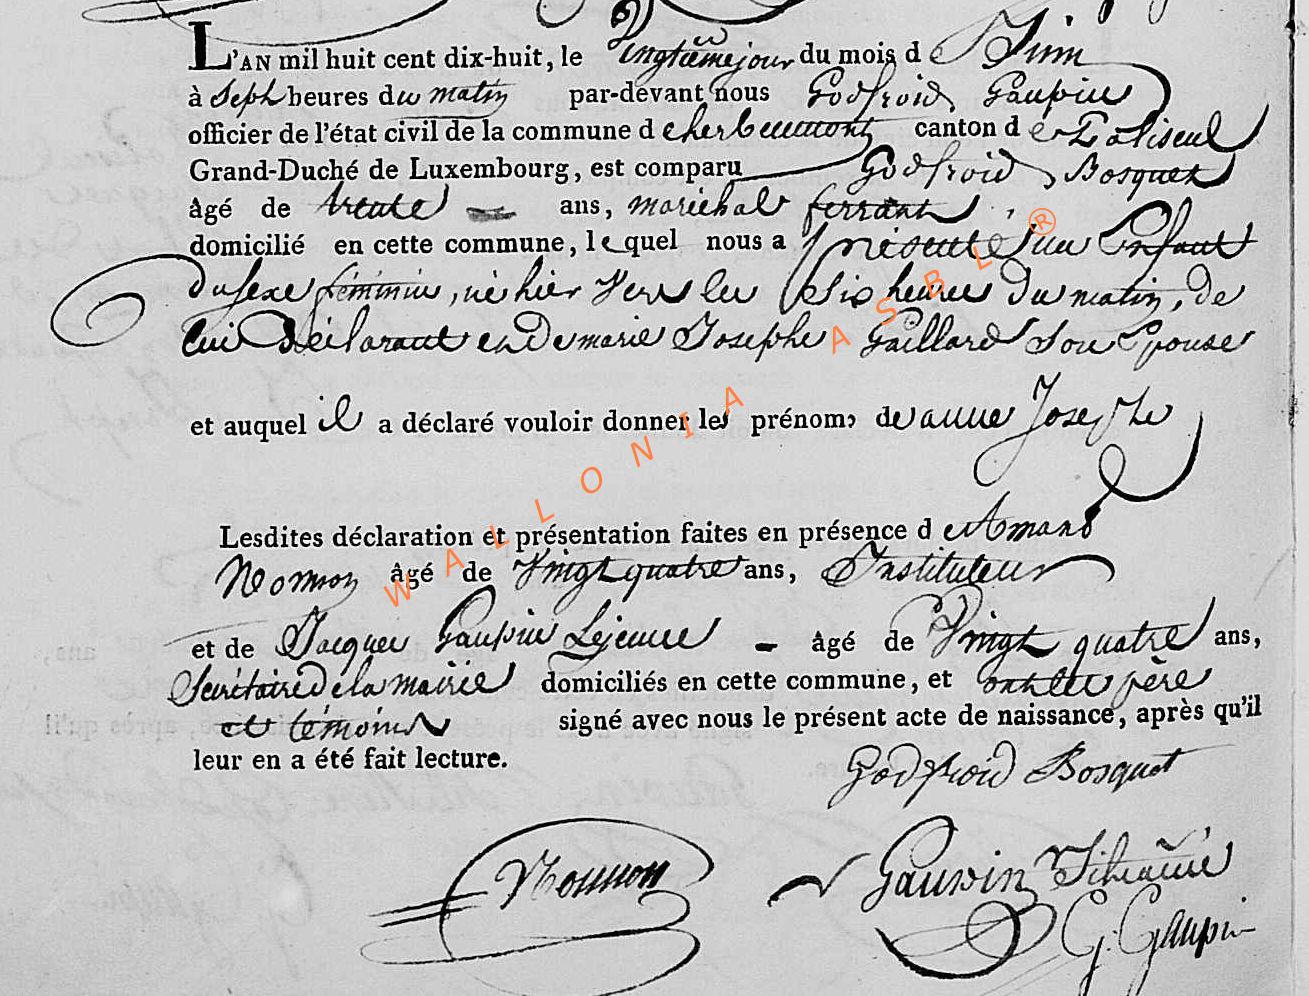 L'AN mil huit cent dix-huit, le Vingtième jour du mois de Juin
à Sept heures du matin par-devant nous Godfroid Gaupin
officier de l'état civil de la commune d cherbeumont canton de
Grand-Duché de Luxembourg, est comparu Godfroid Bosquet
âgé de trente ans, maréchal ferrant,
domicilié en cette commune, lequel nous a présenté un Enfant
du sexe féminin, né hier vers les Six heures du matin, de
lui Déclarant et De marie Josephe Gaillard Son Epouse
et auquel il a déclaré vouloir donner les prénoms de anne Josephe
Lesdites déclaration et présentation faites en présence d Amand
Nonnon âgé de Vingt quatre ans, Instituteur
et de Jacques Gaupin Lejeune âgé de Vingt quatre ans,
Secrétaire de la mairie domiciliés en cette commune, et ont les père
et témoins signé avec nous le présent acte de naissance, après qu'il
leur en a été fait lecture.
Godfroid Bosquet
Nonnon
G. Gaupin
WALLONIA ASBL®